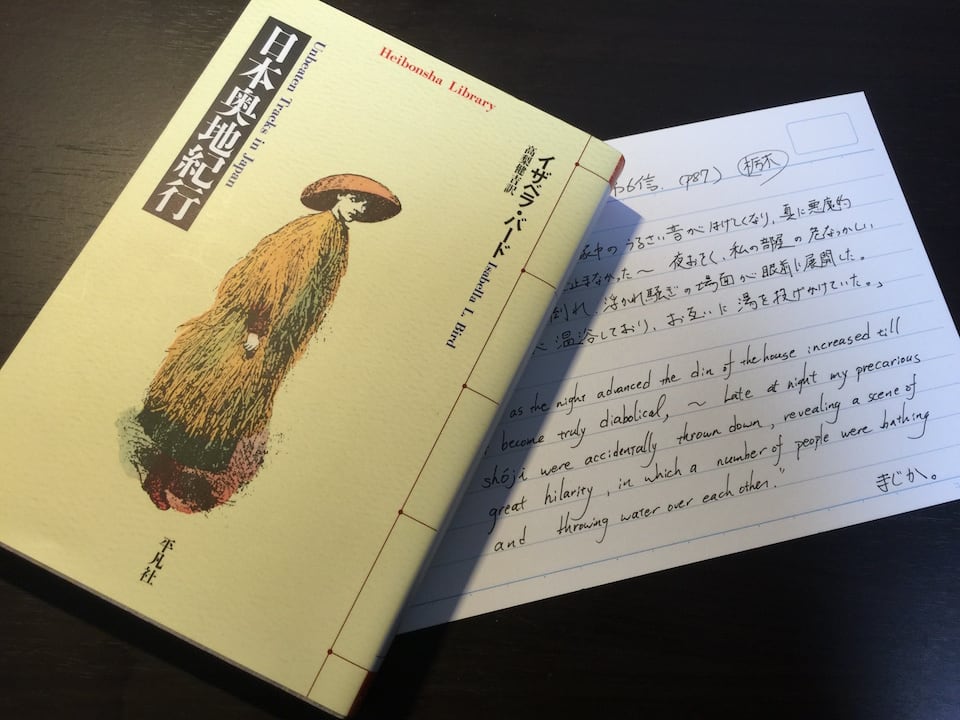 Heibonsha Library
日本奥地紀行
Unbeaten Tracks in Japan
イザベラ・バード
Isabella L. Bird
高梨健吉訳
平凡社
6信. (P87) 栃木
家中のうるさい音がはげしくなり、真に悪魔的
止まなかった〜 夜おそく、私の部屋の危なっかしい
倒れ、浮かれ騒ぎの場面が眼前に展開した。
温浴しており、お互いに湯を投げかけていた。」
as the night advanced the din of the house increased till
become truly diabolical, 〜 Late at night my precarious
shōji were accidentally thrown down, revealing a scene of
great hilarity, in which a number of people were bathing
and throwing water over each other."
まじか。